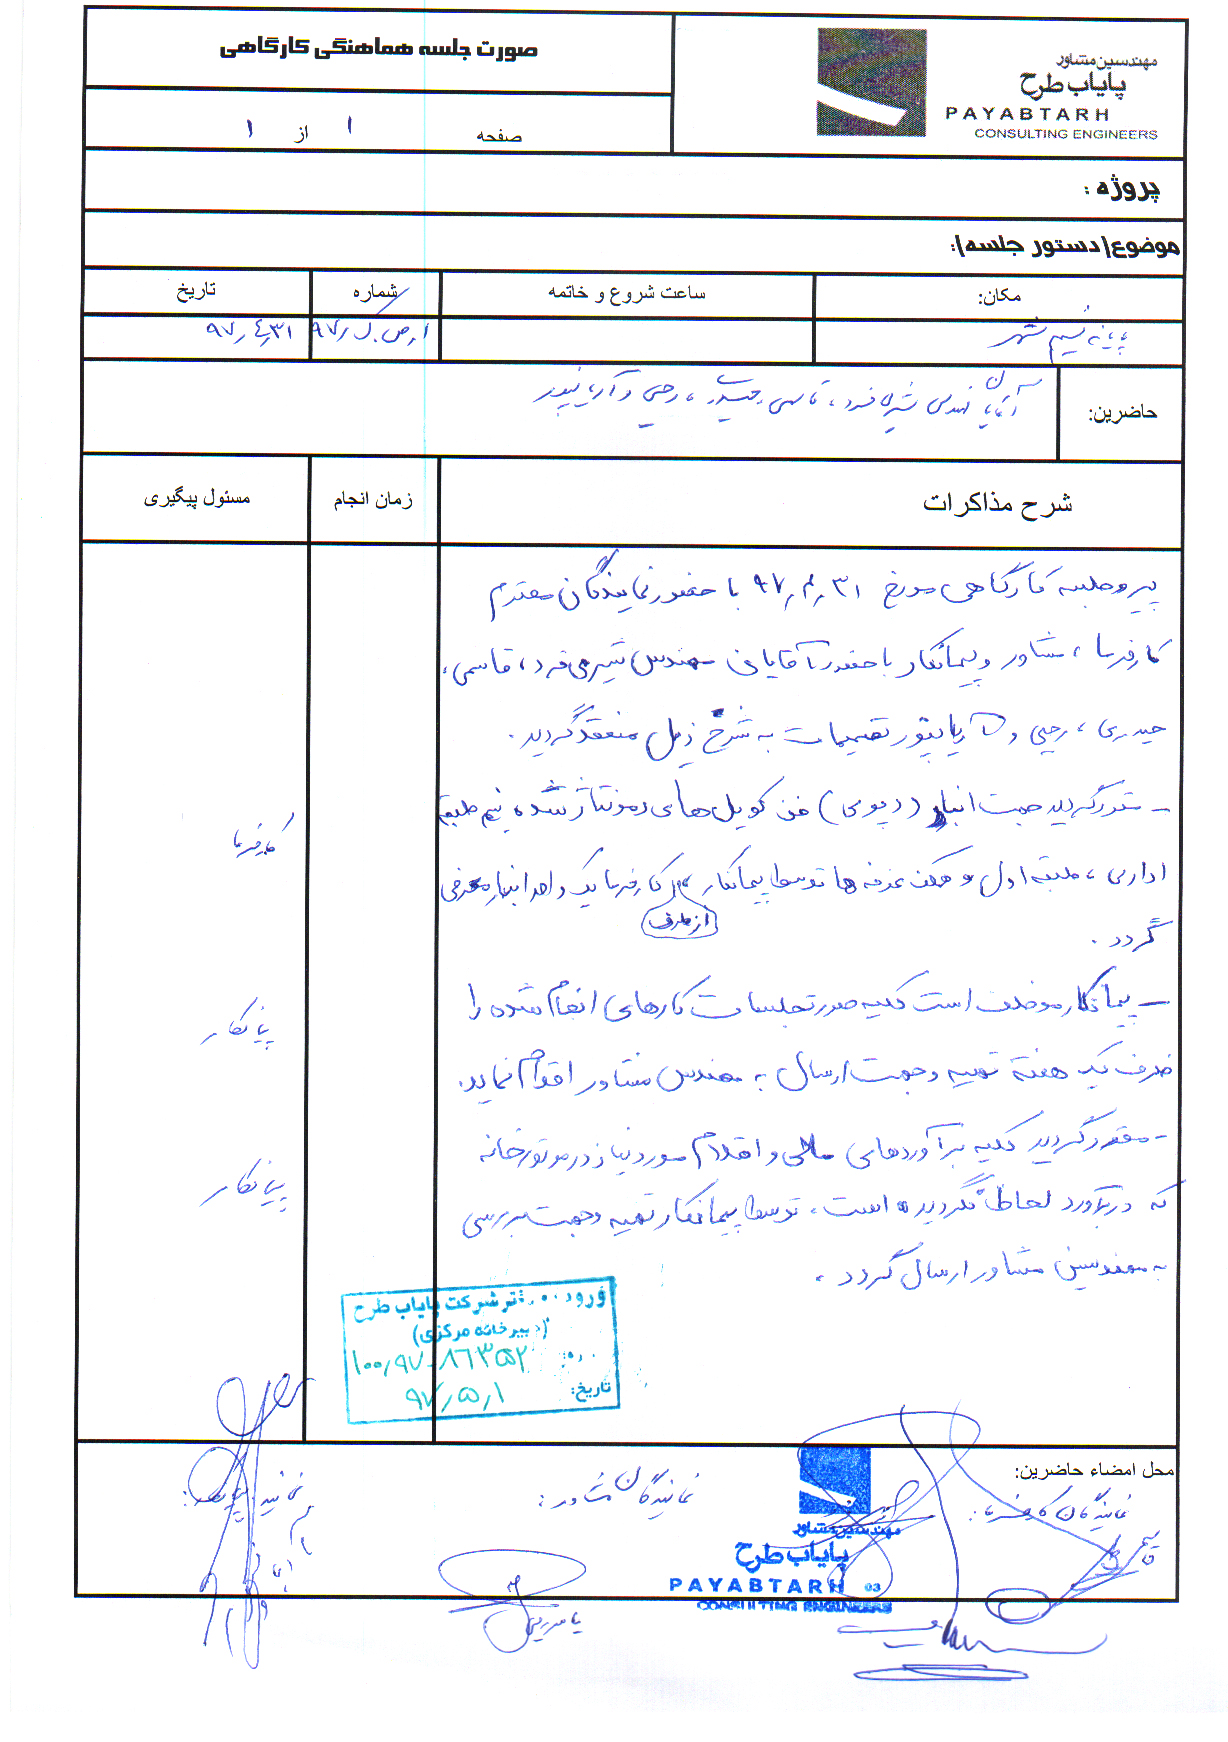 صورت جلسه هماهنگی کارگاهی
مهندسین مشاور
پایاب طرح
PAYABTARH
CONSULTING ENGINEERS
صفحه ۱ از ۱
پروژه :
موضوع/دستور جلسه/:
مکان: ساعت شروع و خاتمه شماره تاریخ
پایانه نسیم شهر ۹۷٫۴٫۳۱
حاضرین: آقایان مهندس شیری فرد، قاسمی، حیدری، رجبی و آریاپور
شرح مذاکرات زمان انجام مسئول پیگیری
پیرو جلسه کارگاهی مورخ ۹۷٫۴٫۳۱ با حضور نمایندگان محترم
کارفرما، مشاور و پیمانکار با حضور آقایان مهندس شیری فرد، قاسمی،
حیدری، رجبی و تصمیمات به شرح ذیل منعقد گردید.
- مقرر گردید جهت انبار (دپوی) فن کویل های دمونتاژ شده نیم طبقه
اداری، طبقه اول و همکف غرفه ها توسط پیمانکار، از طرف کارفرما یک واحد انبار معرفی
گردد.
کارفرما
- پیمانکار موظف است کلیه صورتجلسات کارهای انجام شده را
ظرف یک هفته تهیه و جهت ارسال به مهندس مشاور اقدام نماید.
پیمانکار
- مقرر گردید کلیه برآوردهای مالی و اقلام مورد نیاز در موتورخانه
که در برآورد لحاظ نگردیده است، توسط پیمانکار تهیه و جهت بررسی
به مهندسین مشاور ارسال گردد.
پیمانکار
ورود دفتر شرکت پایاب طرح
(دبیرخانه مرکزی)
۱۰۰٫۹۷-۸۶۳۵۲
تاریخ: ۹۷٫۵٫۱
محل امضاء حاضرین:
نمایندگان کارفرما: نمایندگان مشاور: نماینده پیمانکار:
قاسمی
مهندسین مشاور
پایاب طرح
PAYABTARH 03
CONSULTING ENGINEERS